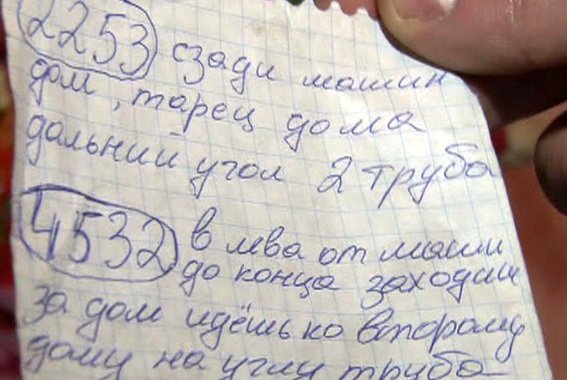 2253 сзади машин
дом, тарец дома
дальний угол 2 труба
4532 в лва от маши
до конца заходиш
за дом идёшь ко второму
дому на углу труба